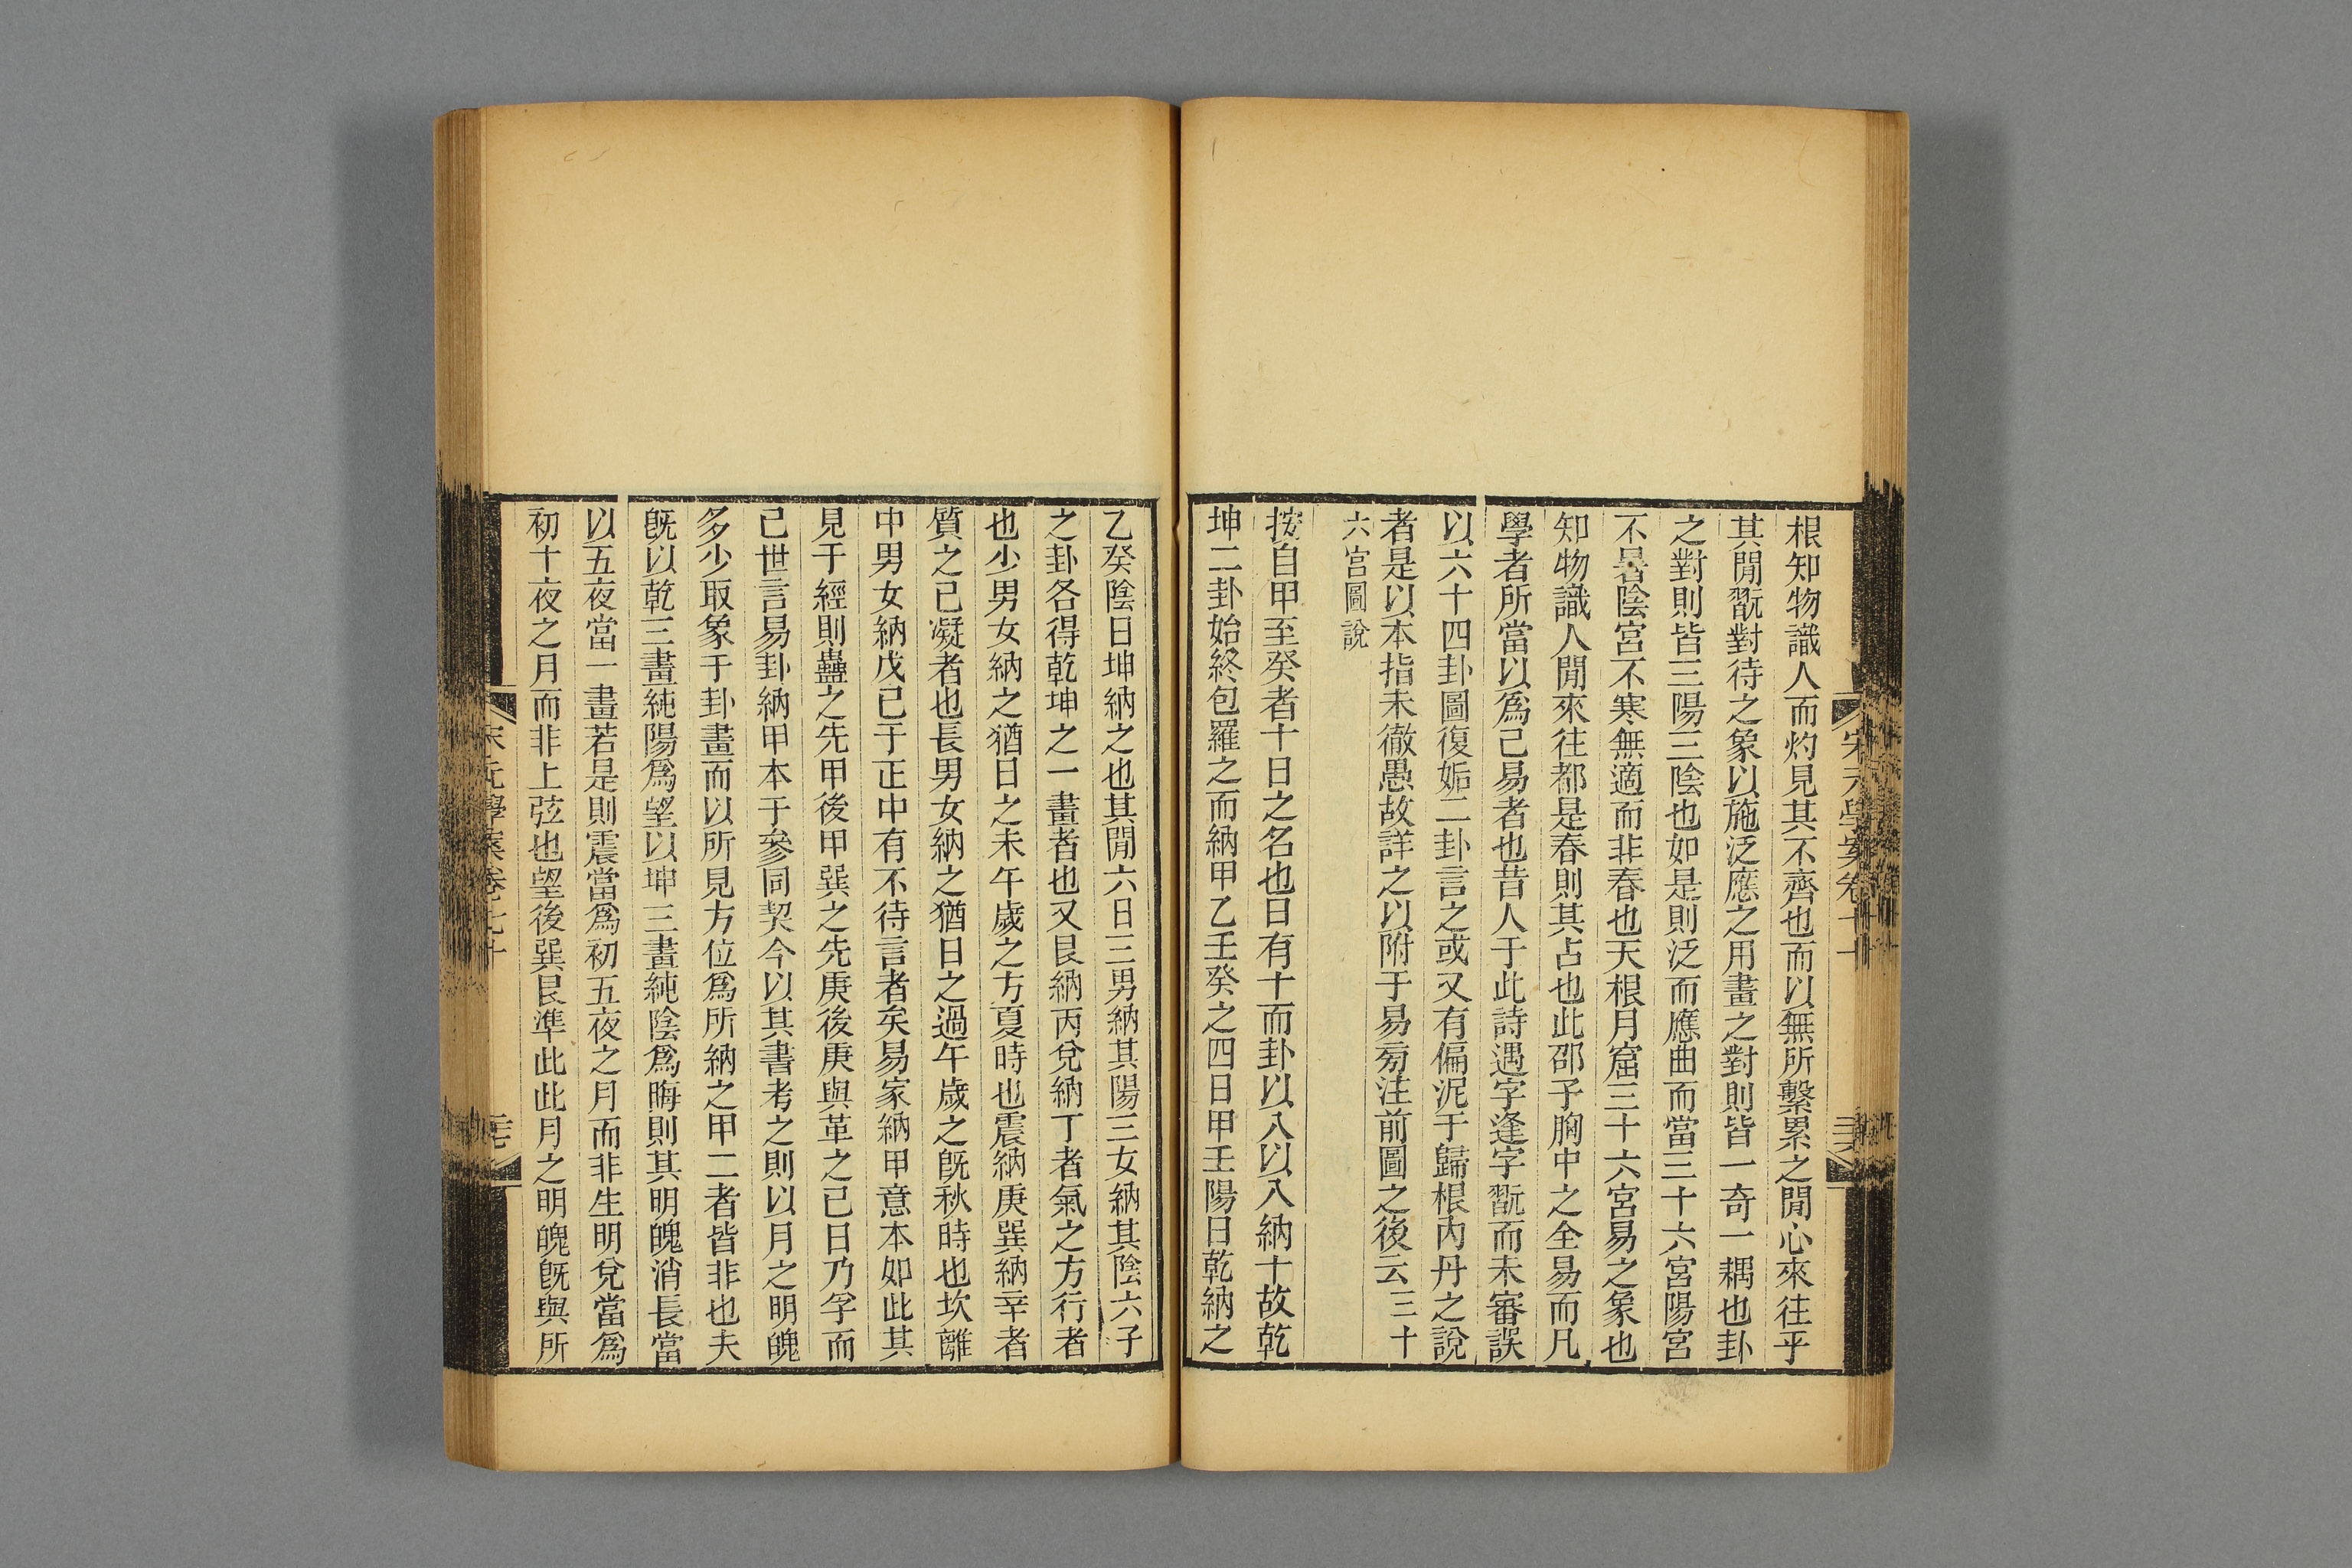 根知物識人而灼見其不齊也而以無所繫累之閒心來往乎
其閒翫對待之象以施泛應之用畫之對則皆一奇一耦也卦
之對則皆三陽三陰也如是則泛而應曲而當三十六宮陽宮
不暑陰宮不寒無適而非春也天根月窟三十六宮易之象也
知物識人閒來往都是春則其占也此邵子胸中之全易而凡
學者所當以爲己易者也昔人于此詩遇字逢字翫而未審誤
以六十四卦圖復姤二卦言之或又有偏泥于歸根內丹之說
者是以本指未徹愚故詳之以附于易㫄注前圖之後云三十
六宮圖說
按自甲至癸者十日之名也日有十而卦以八以八納十故乾
坤二卦始終包羅之而納甲乙壬癸之四日甲壬陽日乾納之
乙癸陰日坤納之也其閒六日三男納其陽三女納其陰六子
之卦各得乾坤之一畫者也又艮納丙兌納丁者氣之方行者
也少男女納之猶日之未午歲之方夏時也震納庚巽納辛者
質之已凝者也長男女納之猶日之過午歲之旣秋時也坎離
中男女納戊己于正中有不待言者矣易家納甲意本如此其
見于經則蠱之先甲後甲巽之先庚後庚與革之己日乃孚而
已世言易卦納甲本于參同契今以其書考之則以月之明魄
多少取象于卦畫而以所見方位爲所納之甲二者皆非也夫
旣以乾三畫純陽爲望以坤三畫純陰爲晦則其明魄消長當
以五夜當一畫若是則震當爲初五夜之月而非生明兌當爲
初十夜之月而非上弦也望後巽艮準此此月之明魄旣與所
宋元學案卷七十